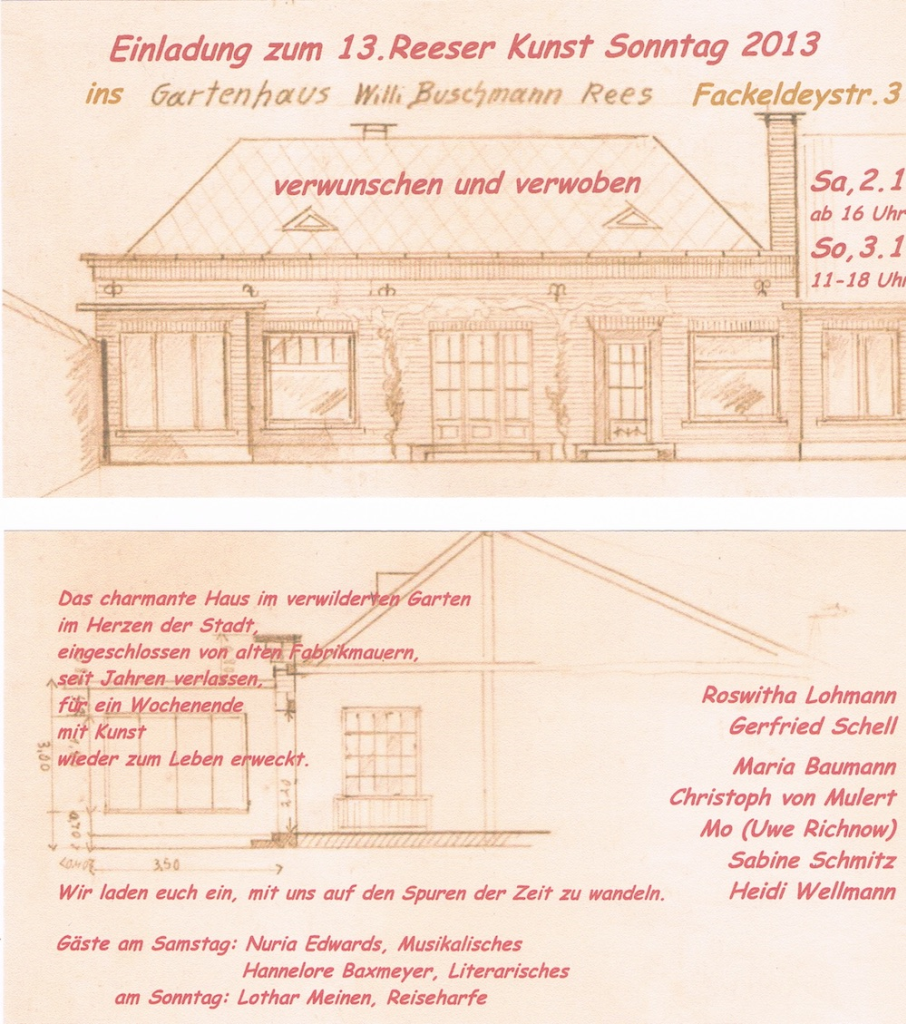 Einladung zum 13.Reeser Kunst Sonntag 2013
ins Gartenhaus Willi Buschmann Rees Fackeldeystr.3
verwunschen und verwoben
Sa,2.1
ab 16 Uhr
So,3.1
11-18 Uhr
Das charmante Haus im verwilderten Garten
im Herzen der Stadt,
eingeschlossen von alten Fabrikmauern,
seit Jahren verlassen,
für ein Wochenende
mit Kunst
wieder zum Leben erweckt.
Roswitha Lohmann
Gerfried Schell
Maria Baumann
Christoph von Mulert
Mo (Uwe Richnow)
Sabine Schmitz
Heidi Wellmann
3,00
0,70
3,50
Wir laden euch ein, mit uns auf den Spuren der Zeit zu wandeln.
Gäste am Samstag: Nuria Edwards, Musikalisches
Hannelore Baxmeyer, Literarisches
am Sonntag: Lothar Meinen, Reiseharfe